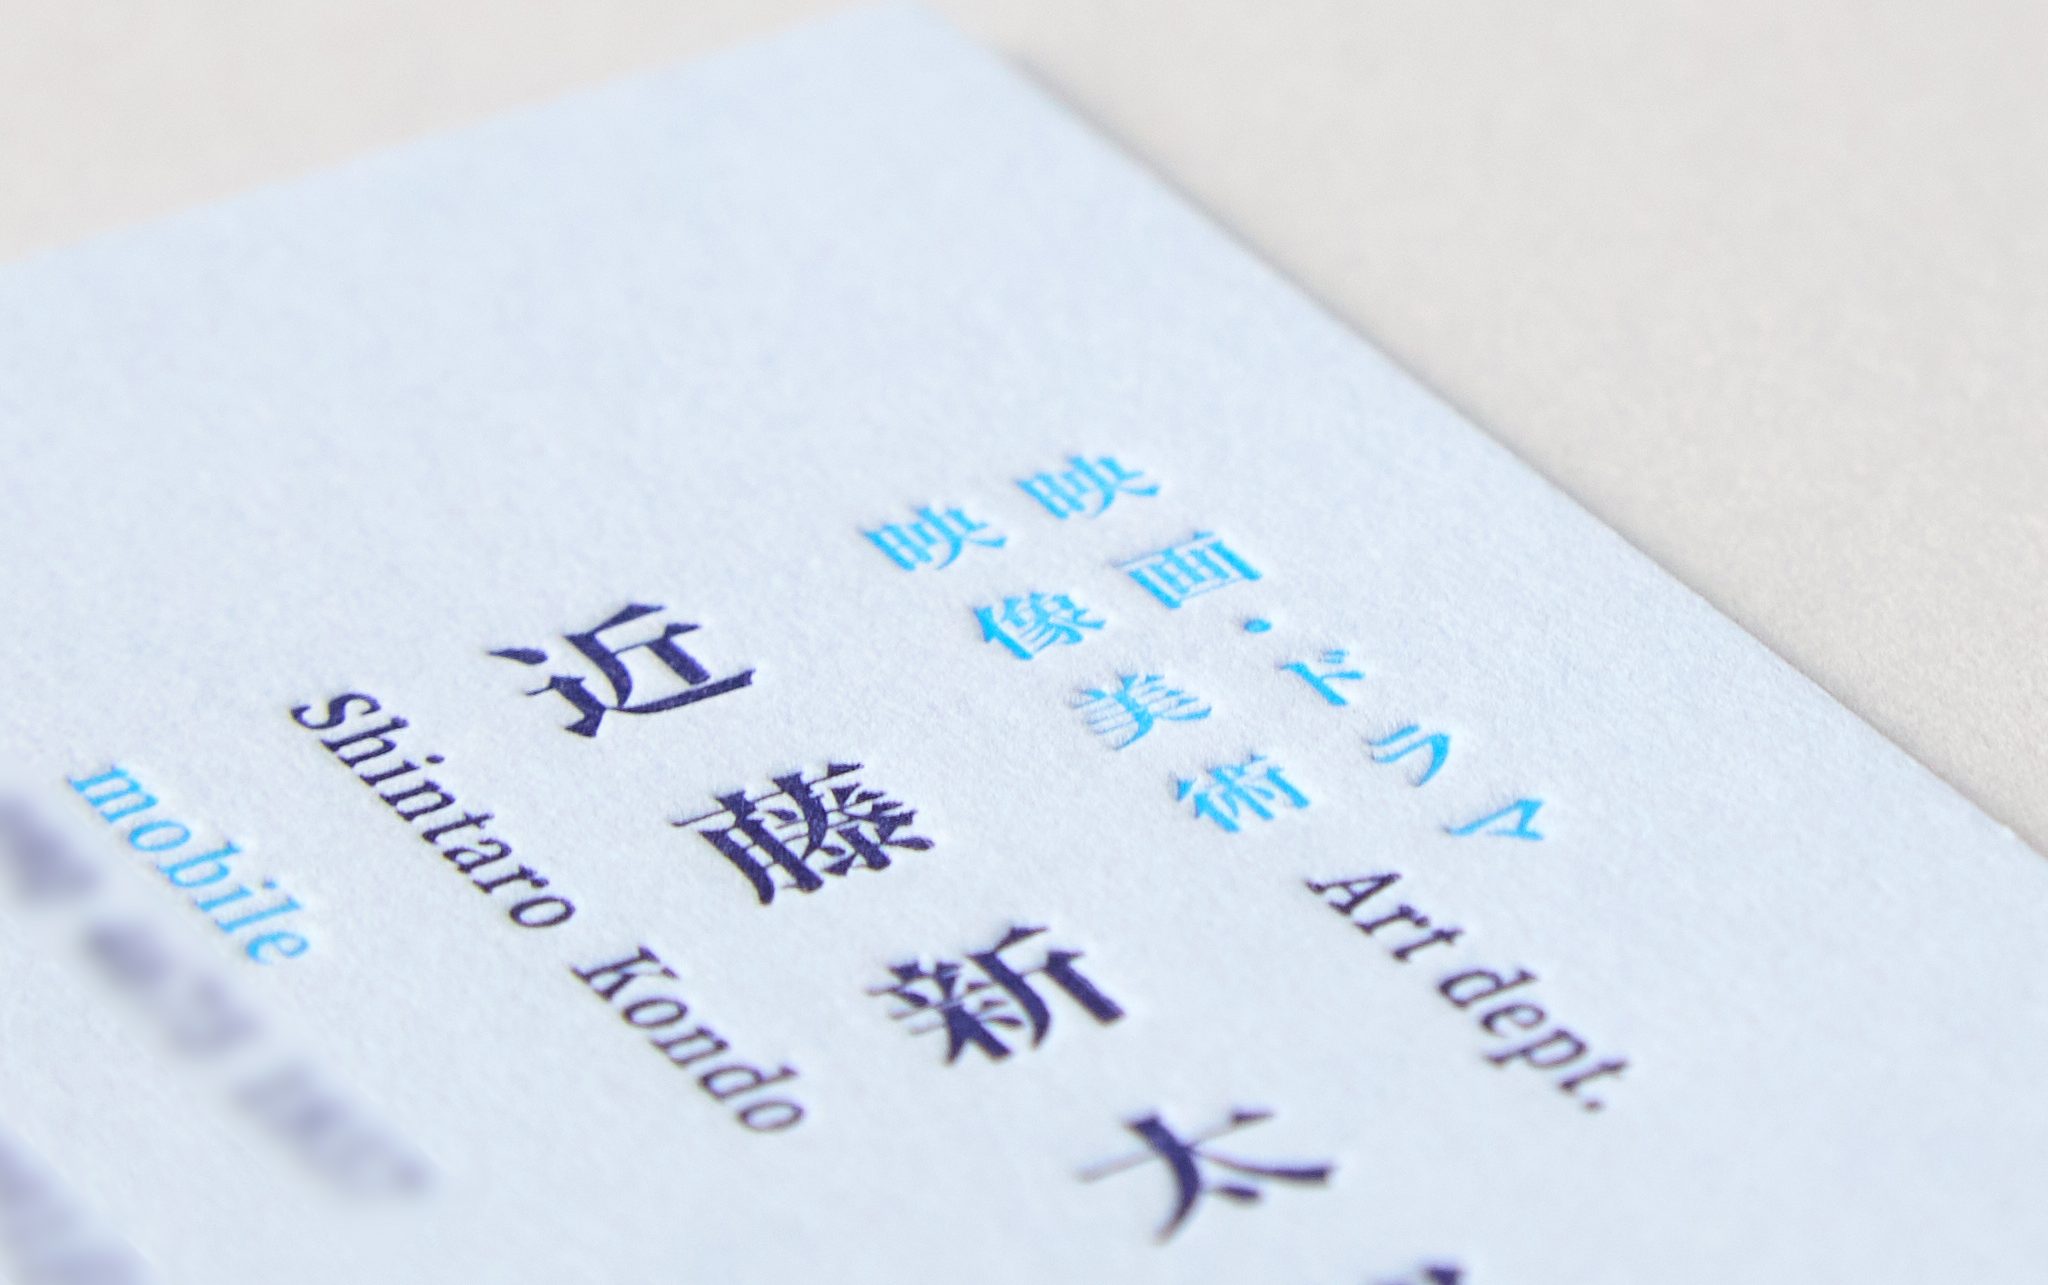 映画・ドラマ
映像美術
Art dept.
近藤新太
Shintaro Kondo
mobile